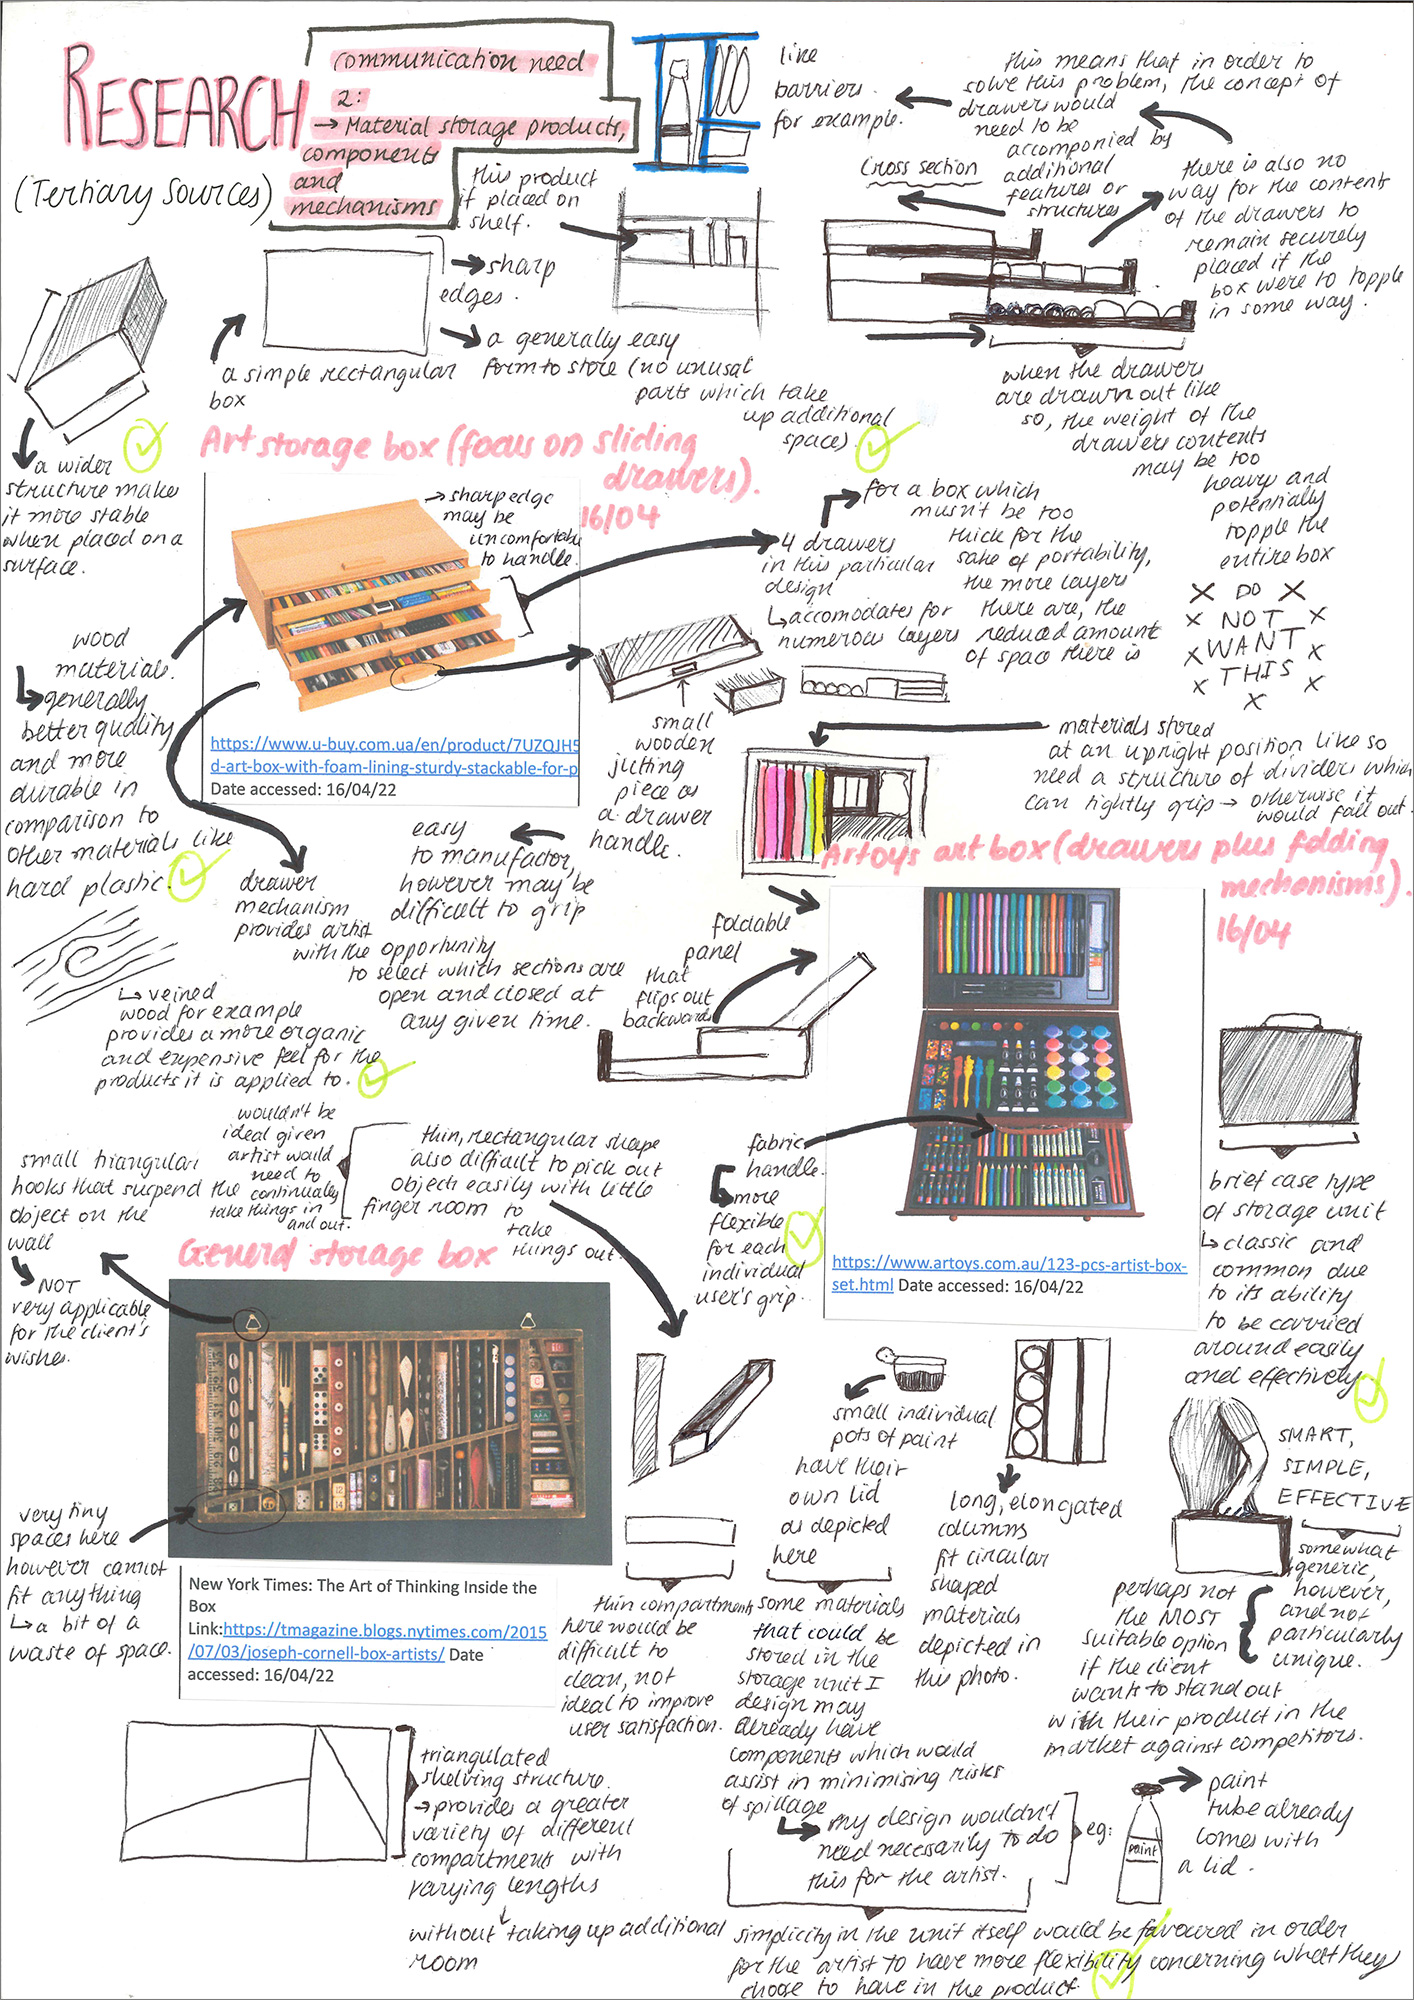 RESEARCH
(Tertiary Sources)
communication need
2:
→ Material storage products,
components
and
mechanisms
this product
if placed on
shelf.
like
barriers.
for example.
this means that in order to
solve this problem, the concept of
drawers would
need to be
accompanied by
additional
features or
structures
cross section
there is also no
way for the contents
of the drawers to
remain securely
placed if the
box were to topple
in some way.
sharp
edges.
a generally easy
form to store (no unusual
parts which take
up additional
space).
a simple rectangular
box
when the drawers
are drawn out like
so, the weight of the
drawers contents
may be too
heavy and
potentially
topple the
entire box
X DO X
X NOT X
X WANT X
X THIS X
X
a wider
structure makes
it more stable
when placed on a
surface.
Art storage box (focus on sliding
drawers).
16/04
→ sharp edge
may be
uncomfortable
to handle.
https://www.u-buy.com.ua/en/product/7UZQJH5
d-art-box-with-foam-lining-sturdy-stackable-for-p
Date accessed: 16/04/22
4 drawers
in this particular
design
↳ accomodates for
numerous layers
for a box which
musn't be too
thick for the
sake of portability,
the more layers
there are, the
reduced amount
of space there is
wood
materials.
↳ generally
better quality
and more
durable in
comparison to
other materials like
hard plastic.
small
wooden
jutting
piece as
a drawer
handle.
easy
to manufactor,
however may be
difficult to grip
drawer
mechanism
provides artist
with the opportunity
to select which sections are
open and closed at
any given time.
materials stored
at an upright position like so
need a structure of dividers which
can tightly grip → otherwise it
would fall out.
Artoys art box (drawers plus folding
mechanisms).
16/04
foldable
panel
that
flips out
backwards
↳ veined
wood for example
provides a more organic
and expensive feel for the
products it is applied to.
https://www.artoys.com.au/123-pcs-artist-box-
set.html Date accessed: 16/04/22
fabric
handle.
more
flexible
for each
individual
user's grip.
brief case type
of storage unit
↳ classic and
common due
to its ability
to be carried
around easily
and effectively
wouldn't be
ideal given
artist would
need to
continually
take things in
and out.
thin, rectangular shape
also difficult to pick out
objects easily with little
finger room to
take
things out.
small triangular
hooks that suspend the
object on the
wall
NOT
very applicable
for the client's
wishes.
General storage box
very tiny
spaces here
however cannot
fit anything
↳ a bit of a
waste of space.
New York Times: The Art of Thinking Inside the
Box
Link:https://tmagazine.blogs.nytimes.com/2015
/07/03/joseph-cornell-box-artists/ Date
accessed: 16/04/22
small individual
pots of paint
have their
own lid
as depicted
here
long, elongated
columns
fit circular
shaped
materials
depicted in
this photo.
SMART,
SIMPLE,
EFFECTIVE
somewhat
generic,
however,
and not
particularly
unique.
perhaps not
the MOST
suitable option
if the client
wants to stand out
with their product in the
market against competitors.
thin compartments
here would be
difficult to
clean, not
ideal to improve
user satisfaction.
some materials
that could be
stored in the
storage unit I
design may
already have
components which would
assist in minimising risks
of spillage
my design wouldn't
need necessarily to do
this for the artist.
eg:
paint
paint
tube already
comes with
a lid.
triangulated
shelving structure.
→ provides a greater
variety of different
compartments with
varying lengths
without taking up additional
room
simplicity in the unit itself would be favoured in order
for the artist to have more flexibility concerning what they
choose to have in the product.